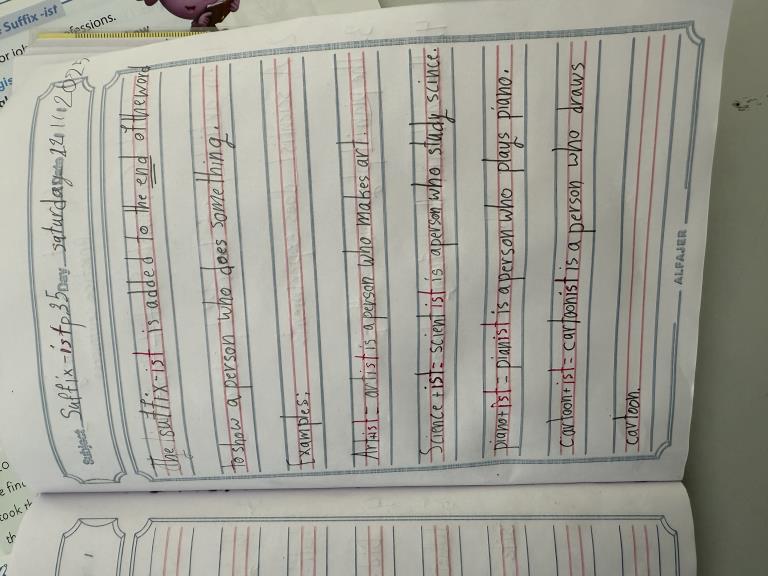 Suffix -ist
fessions.
Subject Suffix-ist p35 Day saturday Date 22/11/2025
The suffix-ist is added to the end of the word
to show a person who does something.
Examples:
Art+ist = artist is a person who makes art.
Science + ist = scientist is a person who study scince.
piano+ist = pianist is a person who plays piano.
cartoon+ist = cartoonist is a person who draws
cartoon.
ALFAJER